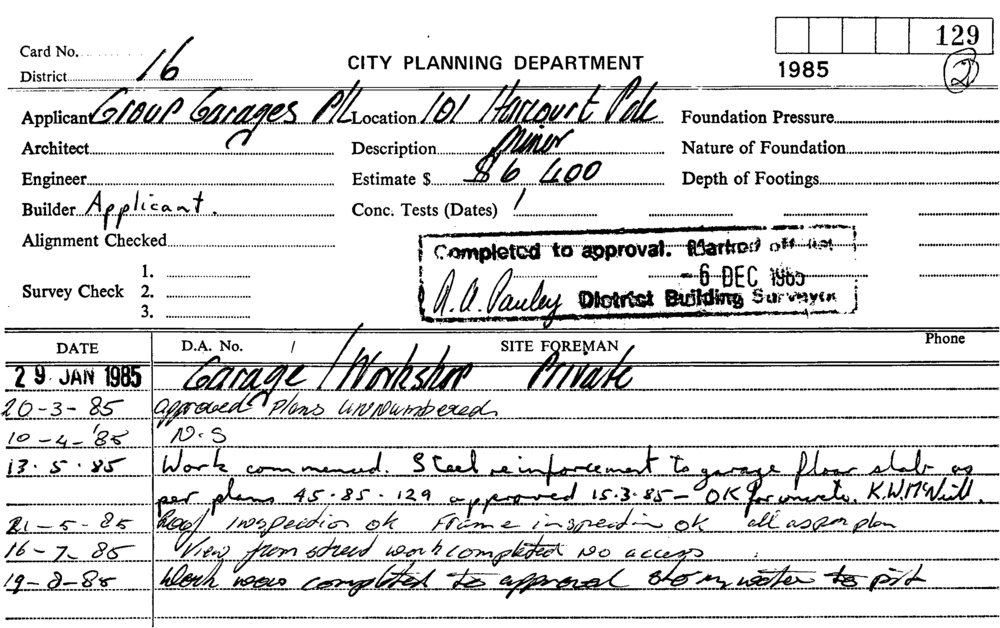 129
Card No.
1985
2
District 16
CITY PLANNING DEPARTMENT
Applicant Group Garages P/L Location 101 Harcourt Pde Foundation Pressure
Architect Description Minor Nature of Foundation
Engineer Estimate $ $6 400 Depth of Footings
Builder Applicant. Conc. Tests (Dates) /
Alignment Checked
Completed to approval. Marked off list
- 6 DEC 1985
R. A. Pauley District Building Surveyor
Survey Check 1.
2.
3.
DATE D.A. No. / SITE FOREMAN Phone
29 JAN 1985 Garage / Workshop Private
20-3-85 approved plans unnumbered
10-4-85 N.S
13.5.85 Work commenced. Steel reinforcement to garage floor slab as
per plans 45.85.129 approved 15.3.85 - OK for concrete. K.W. McNeill.
21-5-85 Roof inspection ok Frame inspection ok all as per plan
16-7-85 View from street work completed no access
19-8-85 Work was completed to approval stormwater to pit